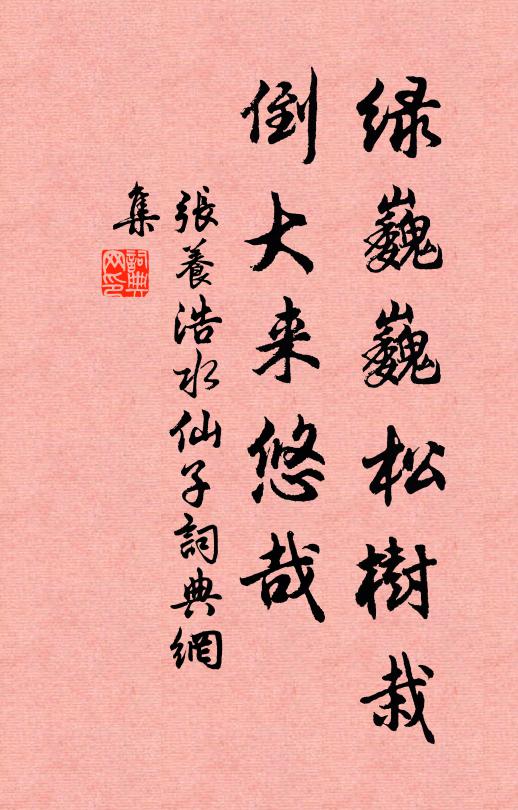 绿巍巍松樹栽
倒大来悠哉
張養浩水仙子詞典網
集
詞典网印